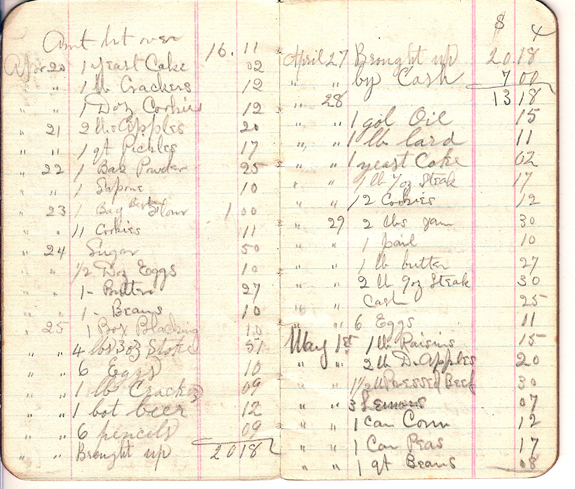 Amt bt over 16.11
Apr 20 1 yeast Cake 02
" " 1 lb Crackers 12
" 1 Doz Cookies 12
" 21 2 lb Apples 20
" " 1 qt Pickles 17
" 22 1 Bak Powder 25
" " 1 10
" 23 1 Bag Flour 1 00
" " 11 Cookies 11
" 24 Sugar 50
" " 1/2 Doz Eggs 10
" " 1 - Butter 27
" " 1 - Beans 10
" 25 1 Box Blacking 10
" " 4 lbs 3oz 51
" " 6 Eggs 10
" " 1 lb Crackers 09
" " 1 bot beer 12
" " 6 pencils 09
" " Brought up 2018
$ ¢
April 27 Brought up 20.18
" " by Cash 7 00
" 28 13 18
" " 1 gol Oil 15
" " 1 lb lard 11
" " 1 yeast Cake 02
" " 1 lb 7oz Steak 17
" " 12 Cookies 12
" 29 2 lbs Jam 30
" " 1 pail 10
" " 1 lb butter 27
" " 2 lb 9oz Steak 30
" " Cash 25
" " 6 Eggs 11
May 1st 1 lb Raisins 15
" " 2 lb D. Apples 20
" " 1 1/2 lb Pressed Beef 30
" " 3 Lemons 07
" " 1 Can Corn 12
" " 1 Can Peas 17
" " 1 qt Beans 08